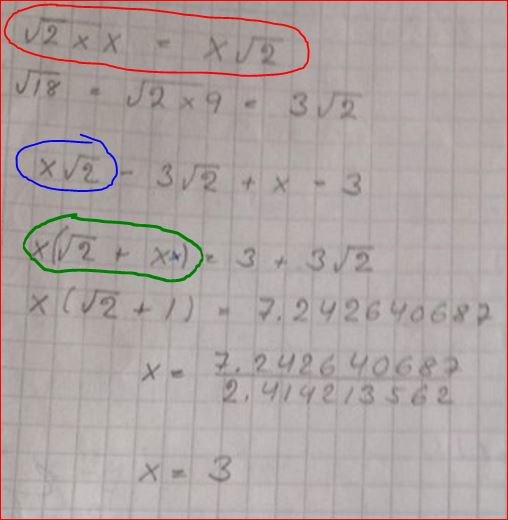 √2 × x = x√2
√18 = √2 × 9 = 3√2
x√2 - 3√2 + x - 3
x(√2 + x) = 3 + 3√2
x(√2 + 1) = 7.242640687
x = 7.242640687
2.414213562
x = 3